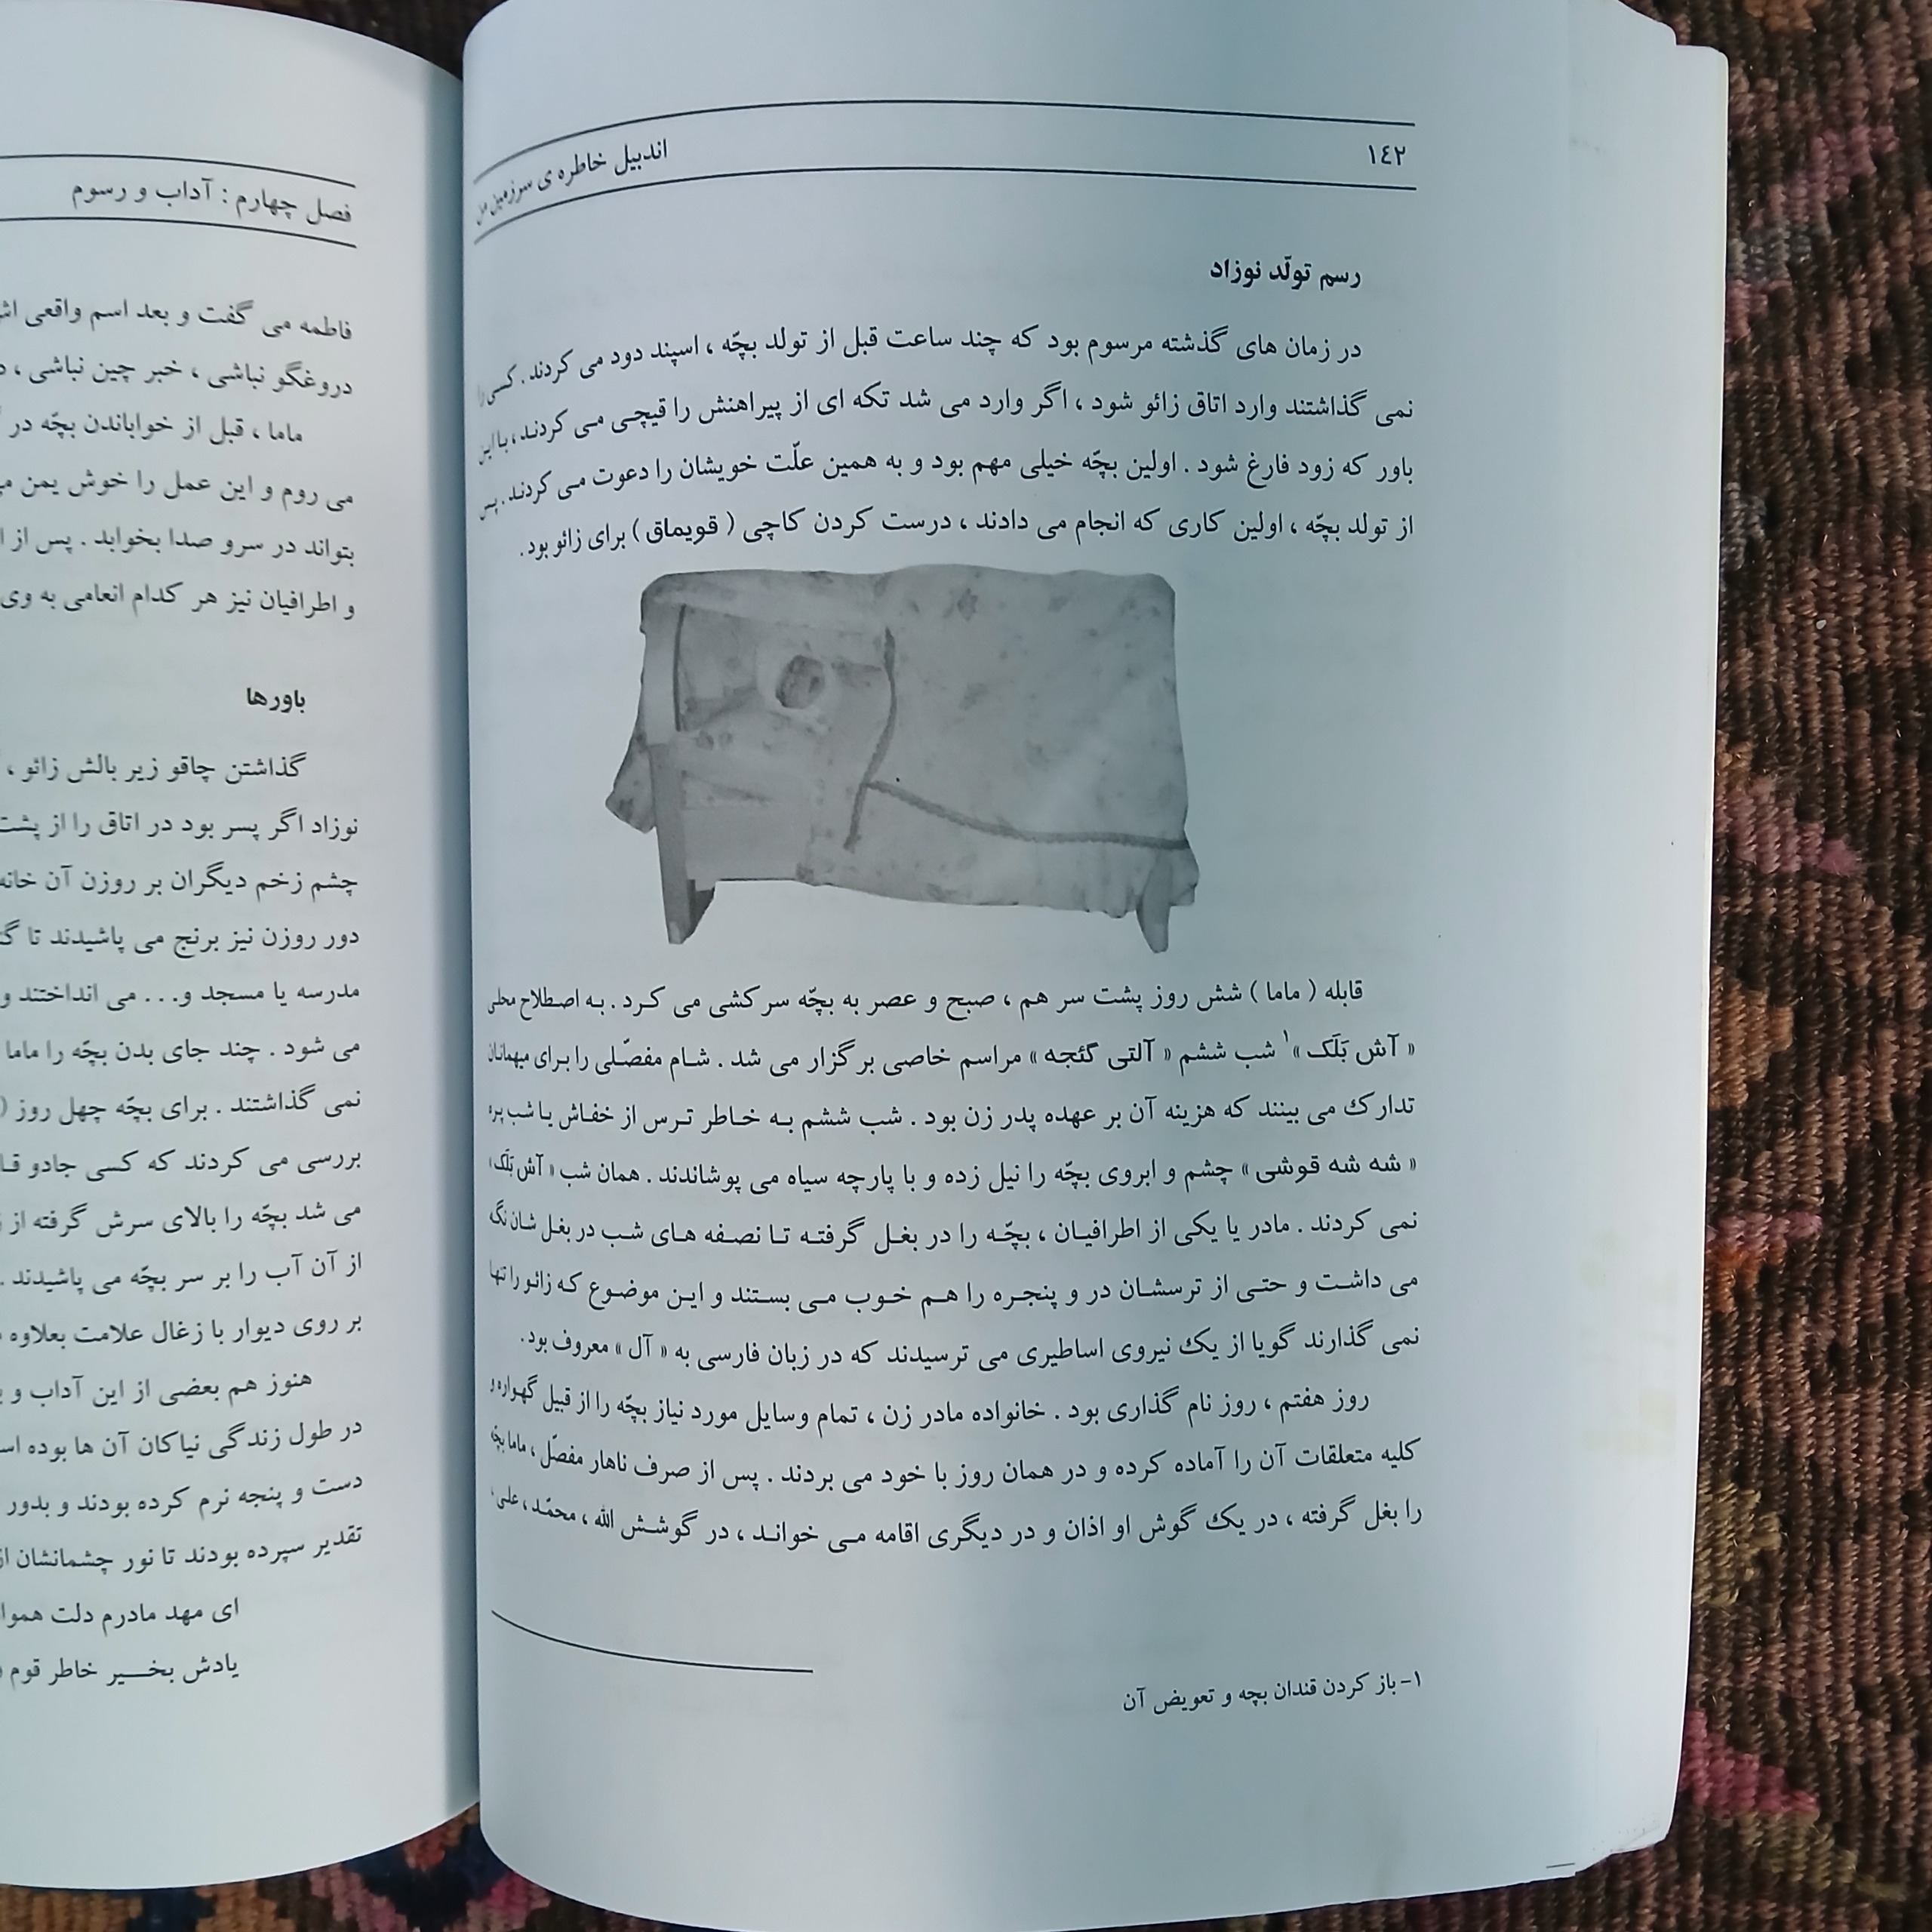 ١٤٢
اندبیل خاطره ی سرزمین من
رسم تولّد نوزاد
در زمان های گذشته مرسوم بود که چند ساعت قبل از تولد بچّه ، اسپند دود می کردند . کسی را
نمی گذاشتند وارد اتاق زائو شود ، اگر وارد می شد تکه ای از پیراهنش را قیچی می کردند ، با این
باور که زود فارغ شود . اولین بچّه خیلی مهم بود و به همین علّت خویشان را دعوت می کردند . پس
از تولد بچّه ، اولین کاری که انجام می دادند ، درست کردن کاچی ( قویماق ) برای زائو بود .
قابله ( ماما ) شش روز پشت سر هم ، صبح و عصر به بچّه سرکشی می کرد . به اصطلاح محلی
« آش بَلَک »١ شب ششم « آلتی گئجه » مراسم خاصی برگزار می شد . شام مفصّلی را برای میهمانان
تدارک می بینند که هزینه آن بر عهده پدر زن بود . شب ششم به خاطر ترس از خفاش یا شب پره
« شه شه قوشی » چشم و ابروی بچّه را نیل زده و با پارچه سیاه می پوشاندند . همان شب « آش بَلَک »
نمی کردند . مادر یا یکی از اطرافیان ، بچّه را در بغل گرفته تا نصفه های شب در بغل شان نگه
می داشت و حتی از ترسشان در و پنجره را هم خوب می بستند و این موضوع که زائو را تنها
نمی گذارند گویا از یک نیروی اساطیری می ترسیدند که در زبان فارسی به « آل » معروف بود .
روز هفتم ، روز نام گذاری بود . خانواده مادر زن ، تمام وسایل مورد نیاز بچّه را از قبیل گهواره و
کلیه متعلقات آن را آماده کرده و در همان روز با خود می بردند . پس از صرف ناهار مفصّل ، ماما بچّه
را بغل گرفته ، در یک گوش او اذان و در دیگری اقامه می خواند ، در گوشش الله ، محمّد ، علی ،
١- باز کردن قندان بچه و تعویض آن
فصل چهارم : آداب و رسوم
فاطمه می گفت و بعد اسم واقعی
دروغگو نباشی ، خبر چین نباشی ،
ماما ، قبل از خواباندن بچّه در
می روم و این عمل را خوش یمن
بتواند در سرو صدا بخوابد . پس از
و اطرافیان نیز هر کدام انعامی به وی
باورها
گذاشتن چاقو زیر بالش زائو ،
نوزاد اگر پسر بود در اتاق را از پشت
چشم زخم دیگران بر روزن آن خانه
دور روزن نیز برنج می پاشیدند تا
مدرسه یا مسجد و... می انداختند و
می شود . چند جای بدن بچّه را ماما
نمی گذاشتند . برای بچّه چهل روز (
بررسی می کردند که کسی جادو
می شد بچّه را بالای سرش گرفته از
از آن آب را بر سر بچّه می پاشیدند .
بر روی دیوار با زغال علامت بعلاوه
هنوز هم بعضی از این آداب و
در طول زندگی نیاکان آن ها بوده
دست و پنجه نرم کرده بودند و بدور
تقدیر سپرده بودند تا نور چشمانشان
ای مهد مادرم دلت
یادش بخیر خاطر قوم